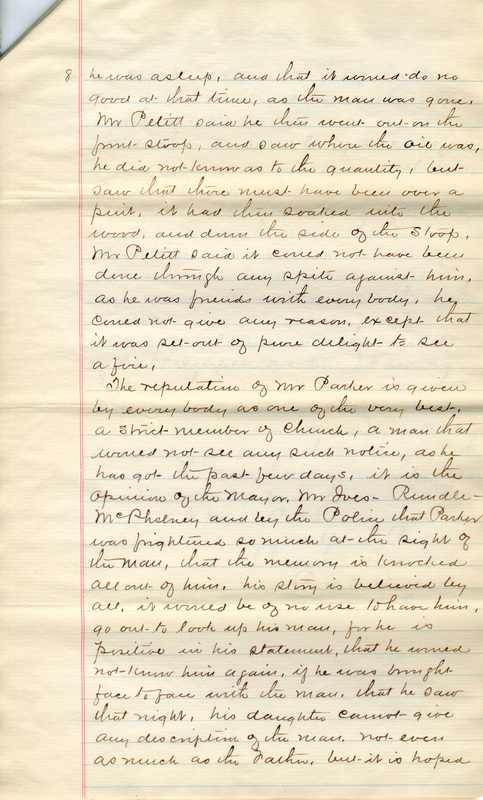 8 he was asleep, and that it would do no
good at that time, as the man was gone.
Mr Petitt said he then went out on the
front stoop, and saw where the oil was,
he did not know as to the quantity, but
saw that there must have been over a
pint, it had then soaked into the
wood, and down the side of the Stoop.
Mr Petitt said it could not have been
done through any spite against him,
as he was friends with every body, he
could not give any reason, except that
it was set out of pure delight to see
a fire,
The reputation of Mr Parker is given
by every body as one of the very best,
a strict member of Church, a man that
would not see any such notice, as he
has got the past few days, it is the
opinion of the Mayor, Mr Ives - Rundle -
and by the Police that Parker
was frightened so much at the sight of
the man, that the memory is knocked
all out of him, his story is believed by
all, it would be of no use to have him,
go out to look up his man, for he is
positive in his statement, that he would
not know him again, if he was brought
face to face with the man, that he saw
that night, his daughter cannot give
any description of the man, not even
as much as the Father, but it is hoped